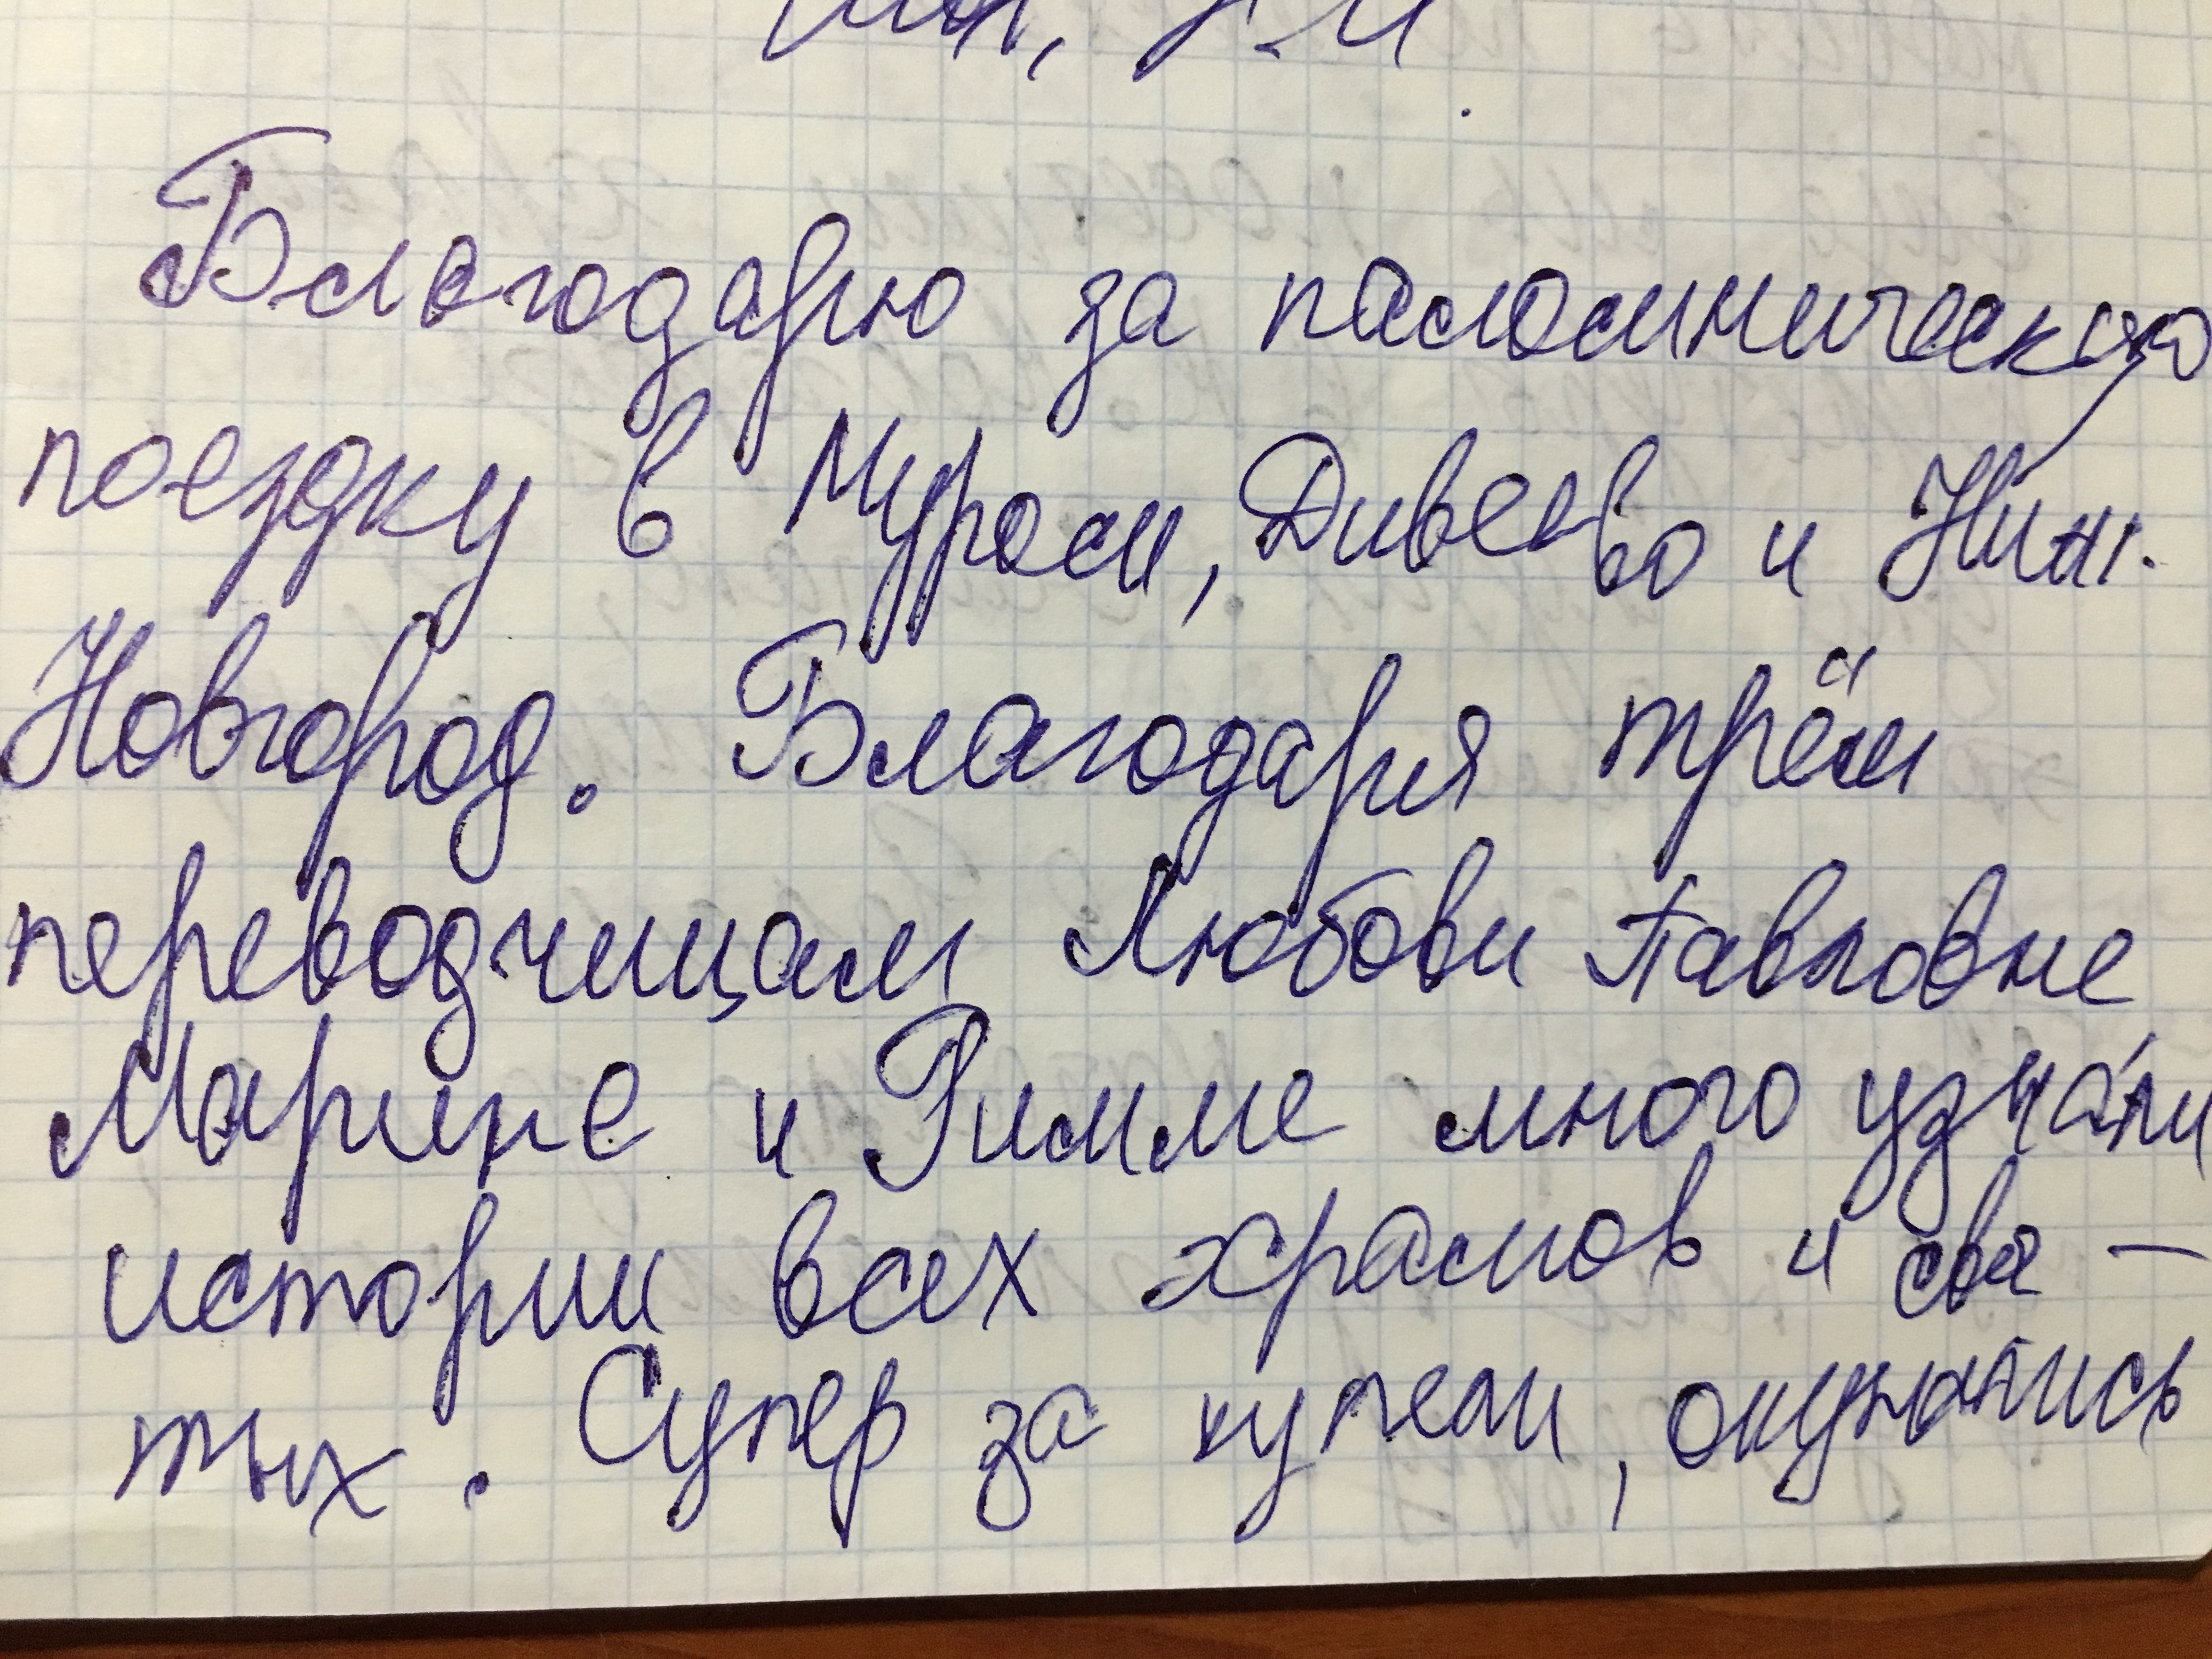 Благодарю за паломническую
поездку в Муром, Дивеево и Ниж.
Новгород. Благодаря трём
переводчицам Любови Павловне
Марине и Римме много узнали
истории всех храмов и свя-
тых. Супер за купели, окунались